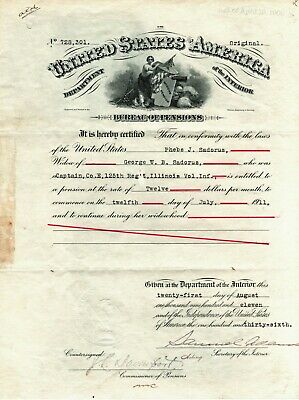 No 728,301. Original.
UNITED STATES OF AMERICA
DEPARTMENT OF THE INTERIOR
BUREAU OF PENSIONS
It is hereby certified That in conformity with the laws
of the United States Phebe J. Sadorus,
Widow of George W. B. Sadorus, who was
a Captain, Co. E, 125th Reg't, Illinois Vol. Inf. is entitled to
a pension at the rate of Twelve dollars per month, to
commence on the twelfth day of July, 1911,
and to continue during her widowhood
Given at the Department of the Interior this
twenty-first day of August
one thousand nine hundred and eleven
and of the Independence of the United States
of America the one hundred and thirty-sixth.
Samuel Adams
Acting Secretary of the Interior.
Countersigned,
J. L. Davenport
Commissioner of Pensions